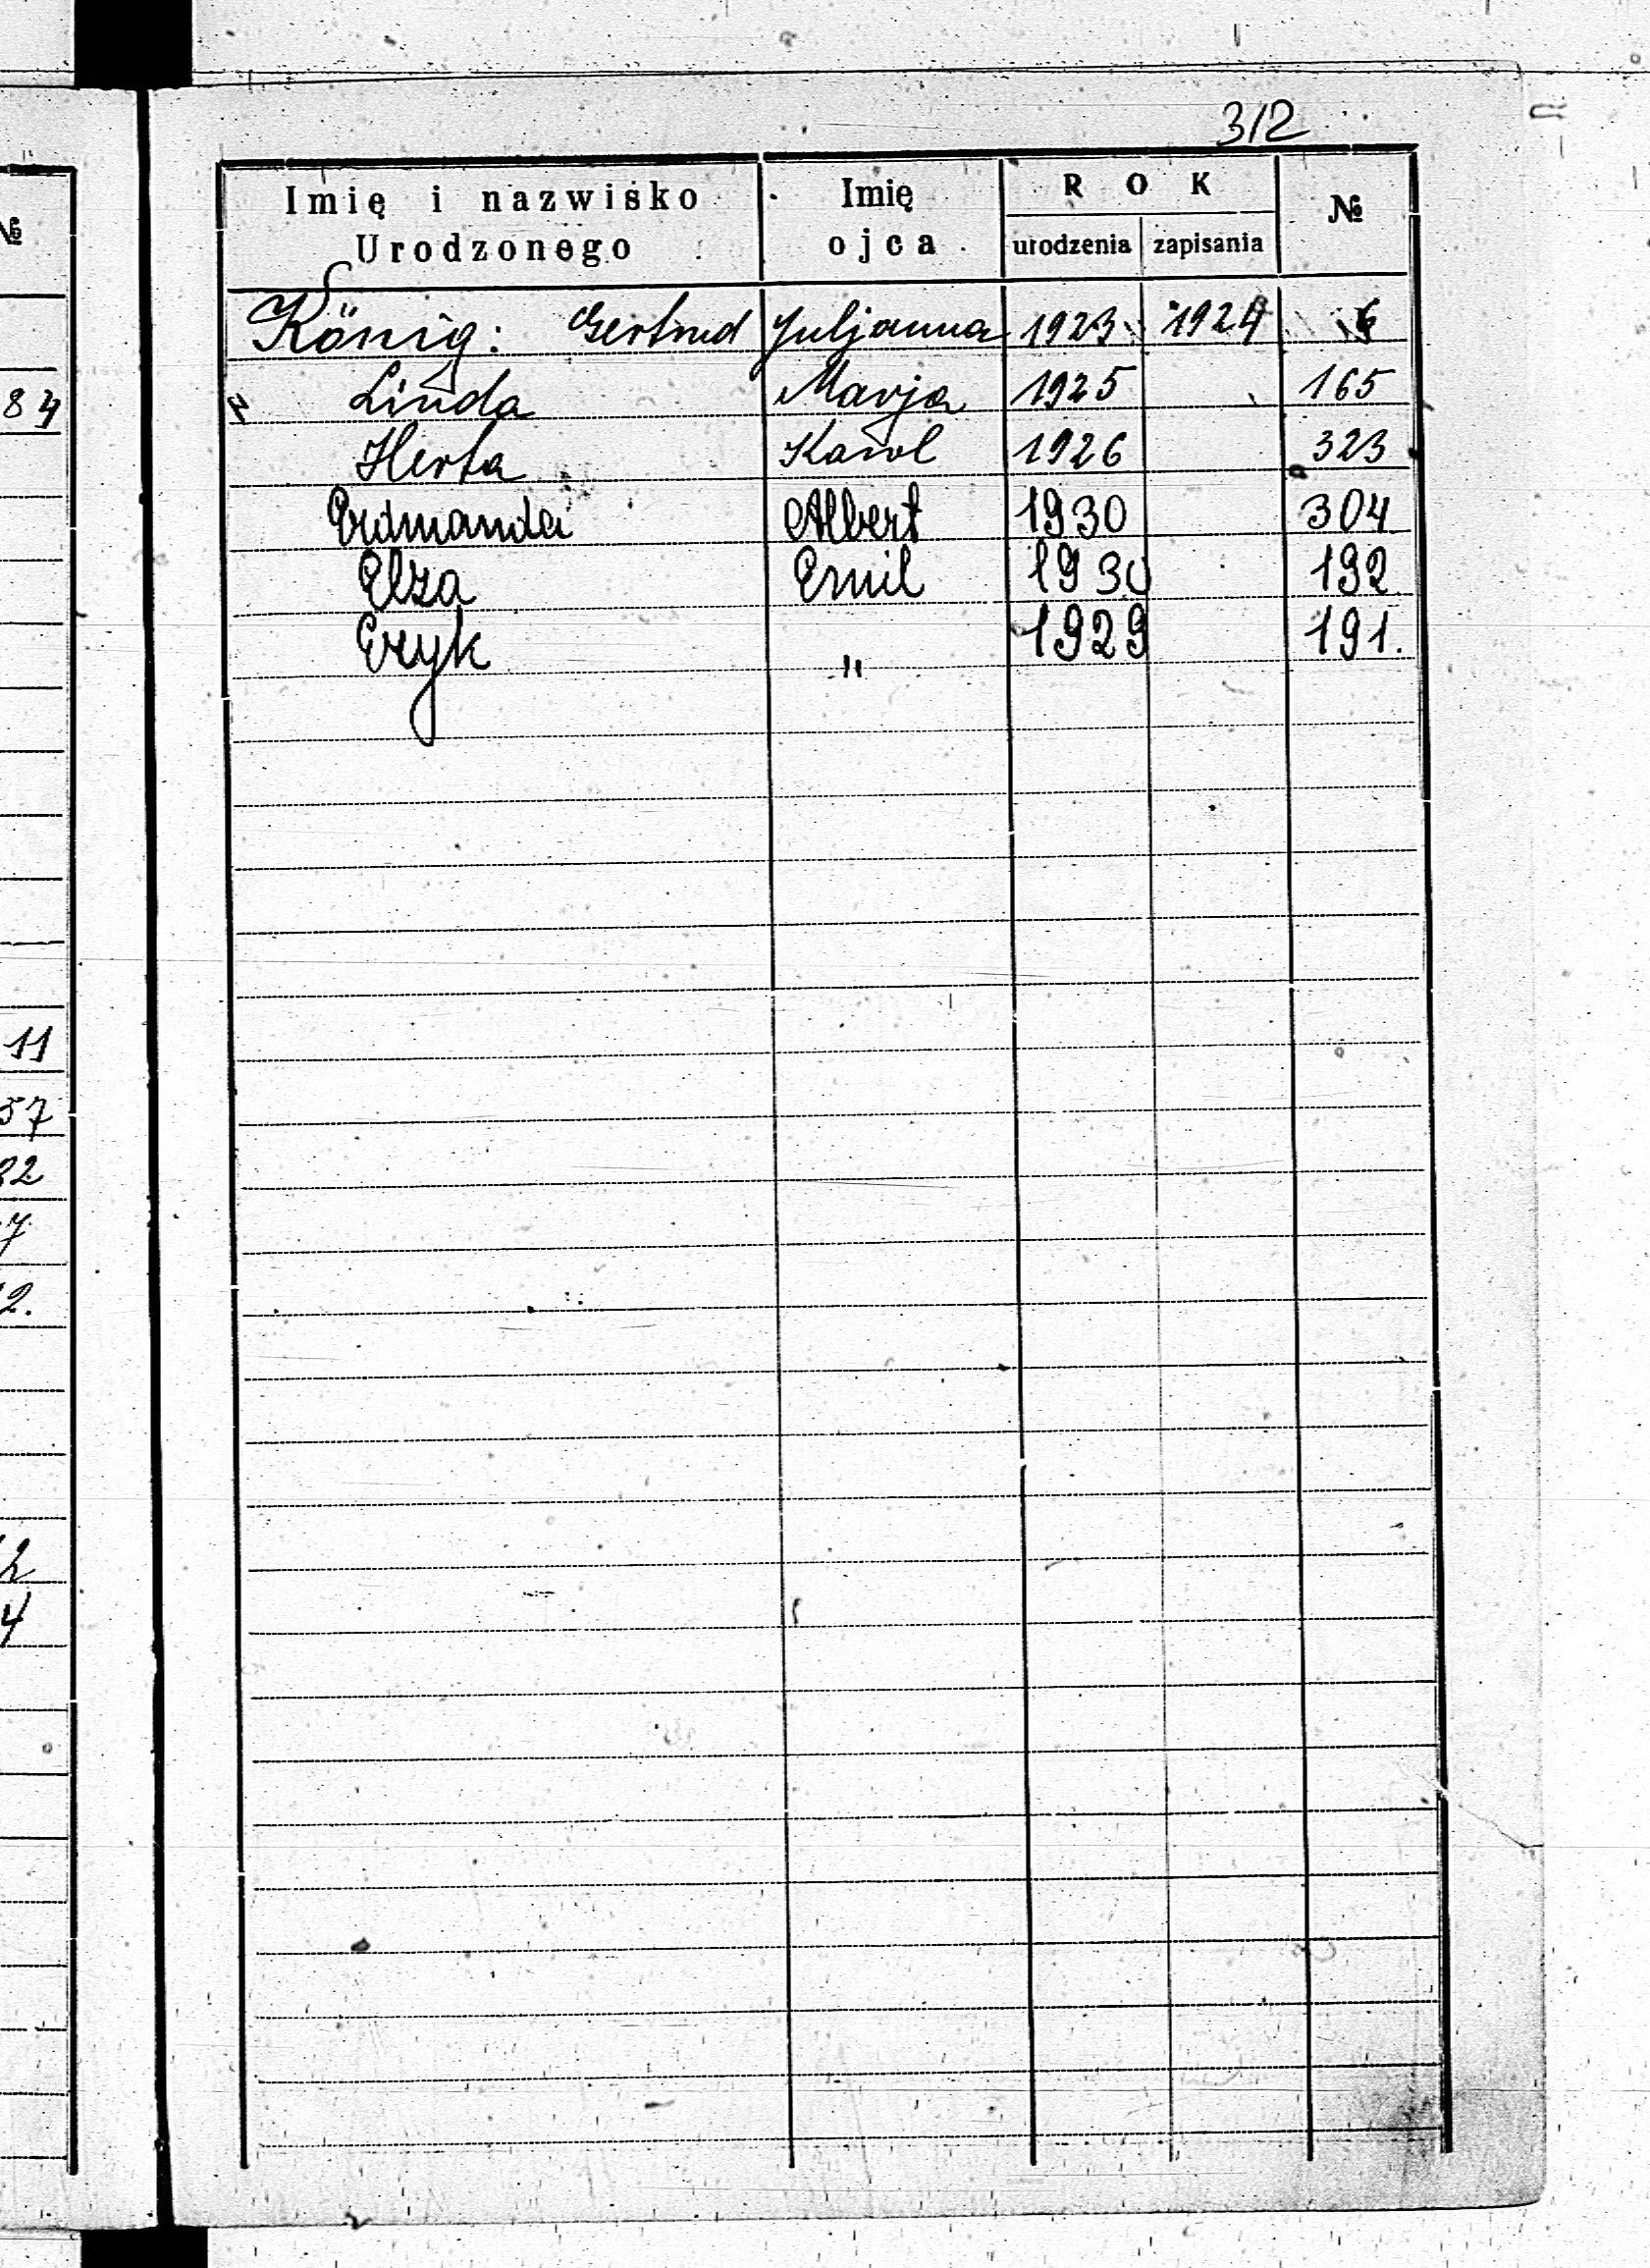 312
Imię i nazwisko Urodzonego | Imię ojca | ROK urodzenia | zapisania | №
König: Gertrud | Juljanna | 1923 | 1924 | 6
Linda | Marja | 1925 | 165
Herta | Karol | 1926 | 323
Erdmanda | Albert | 1930 | 304
Elza | Emil | 1930 | 192
Eryk | " | 1929 | 191.
№
84
11
57
82
7
2.
2
4